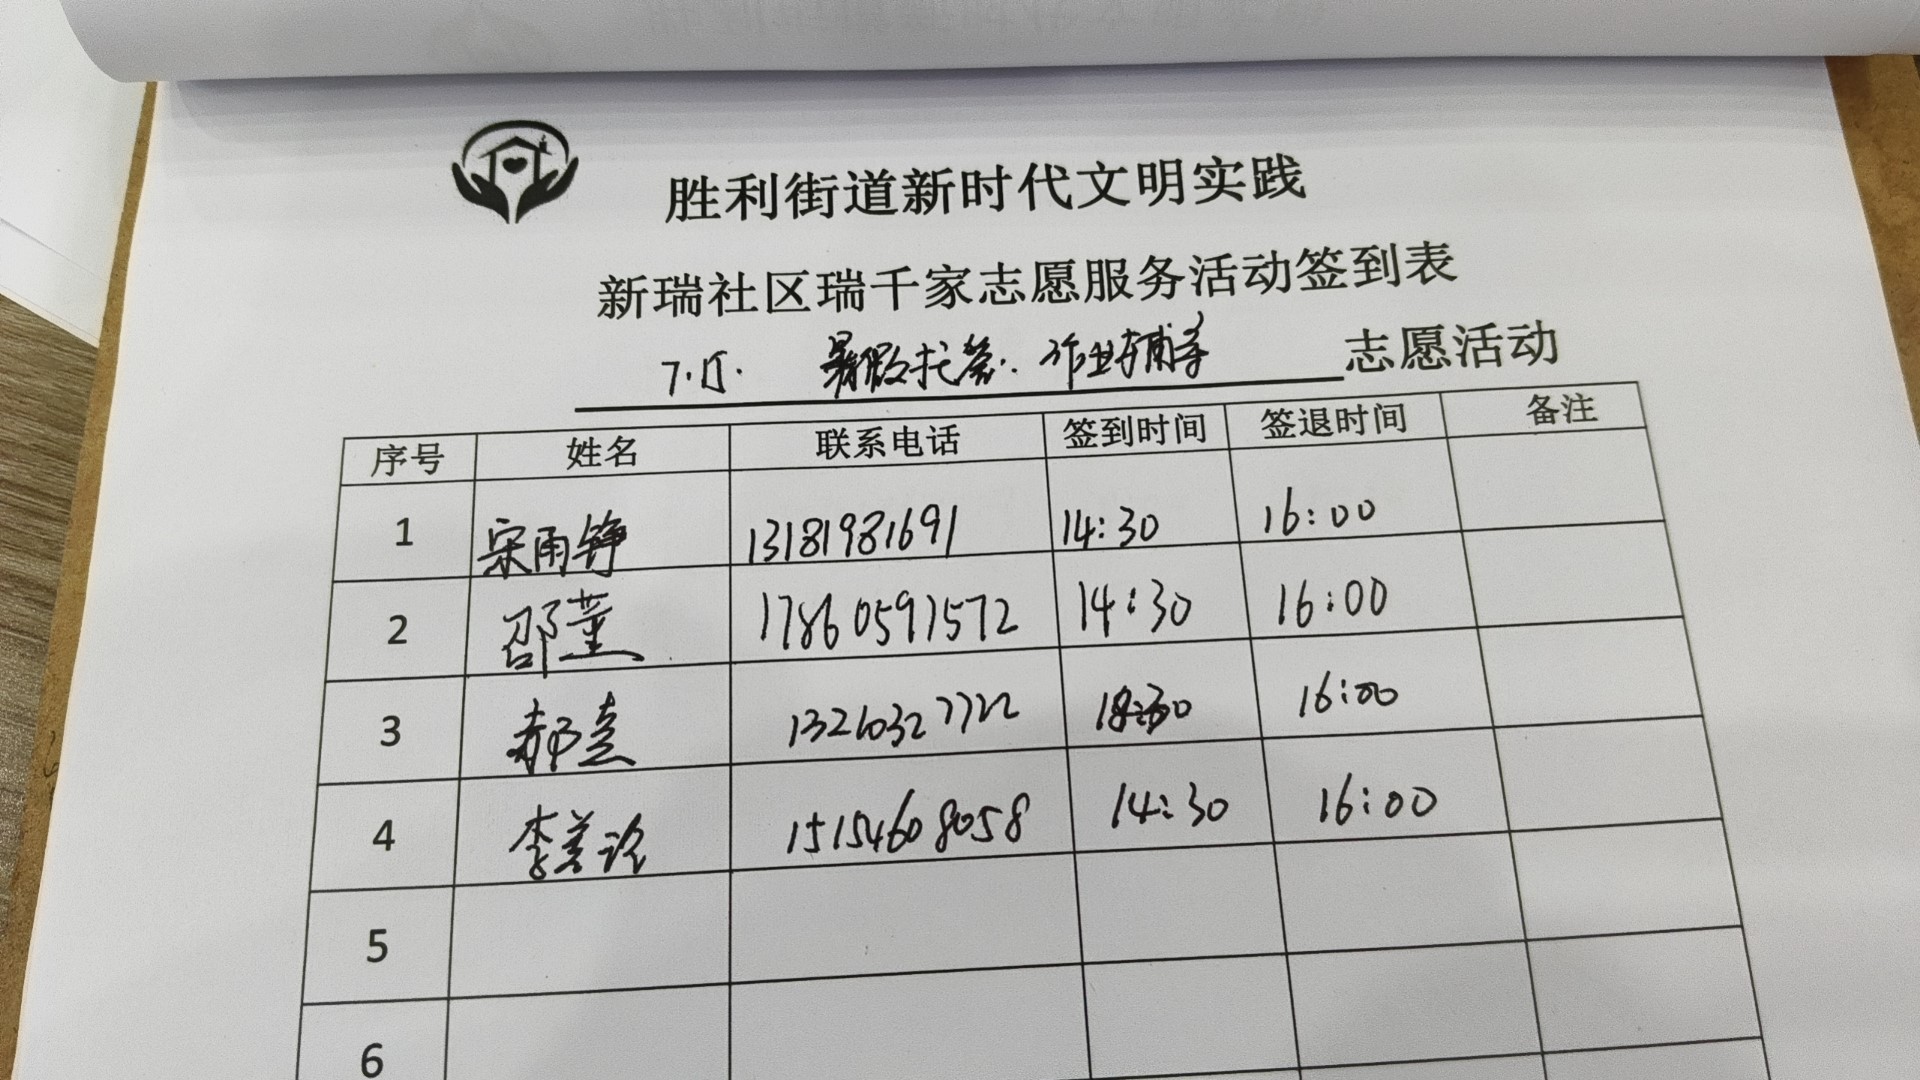 胜利街道新时代文明实践
新瑞社区瑞千家志愿服务活动签到表
7.15. 暑假托管.作业辅导 志愿活动
序号 姓名 联系电话 签到时间 签退时间 备注
1 宋雨铮 13181981691 14:30 16:00
2 邵董 17860591572 14:30 16:00
3 郝 16:00
4 李美 15154608058 14:30 16:00
5
6